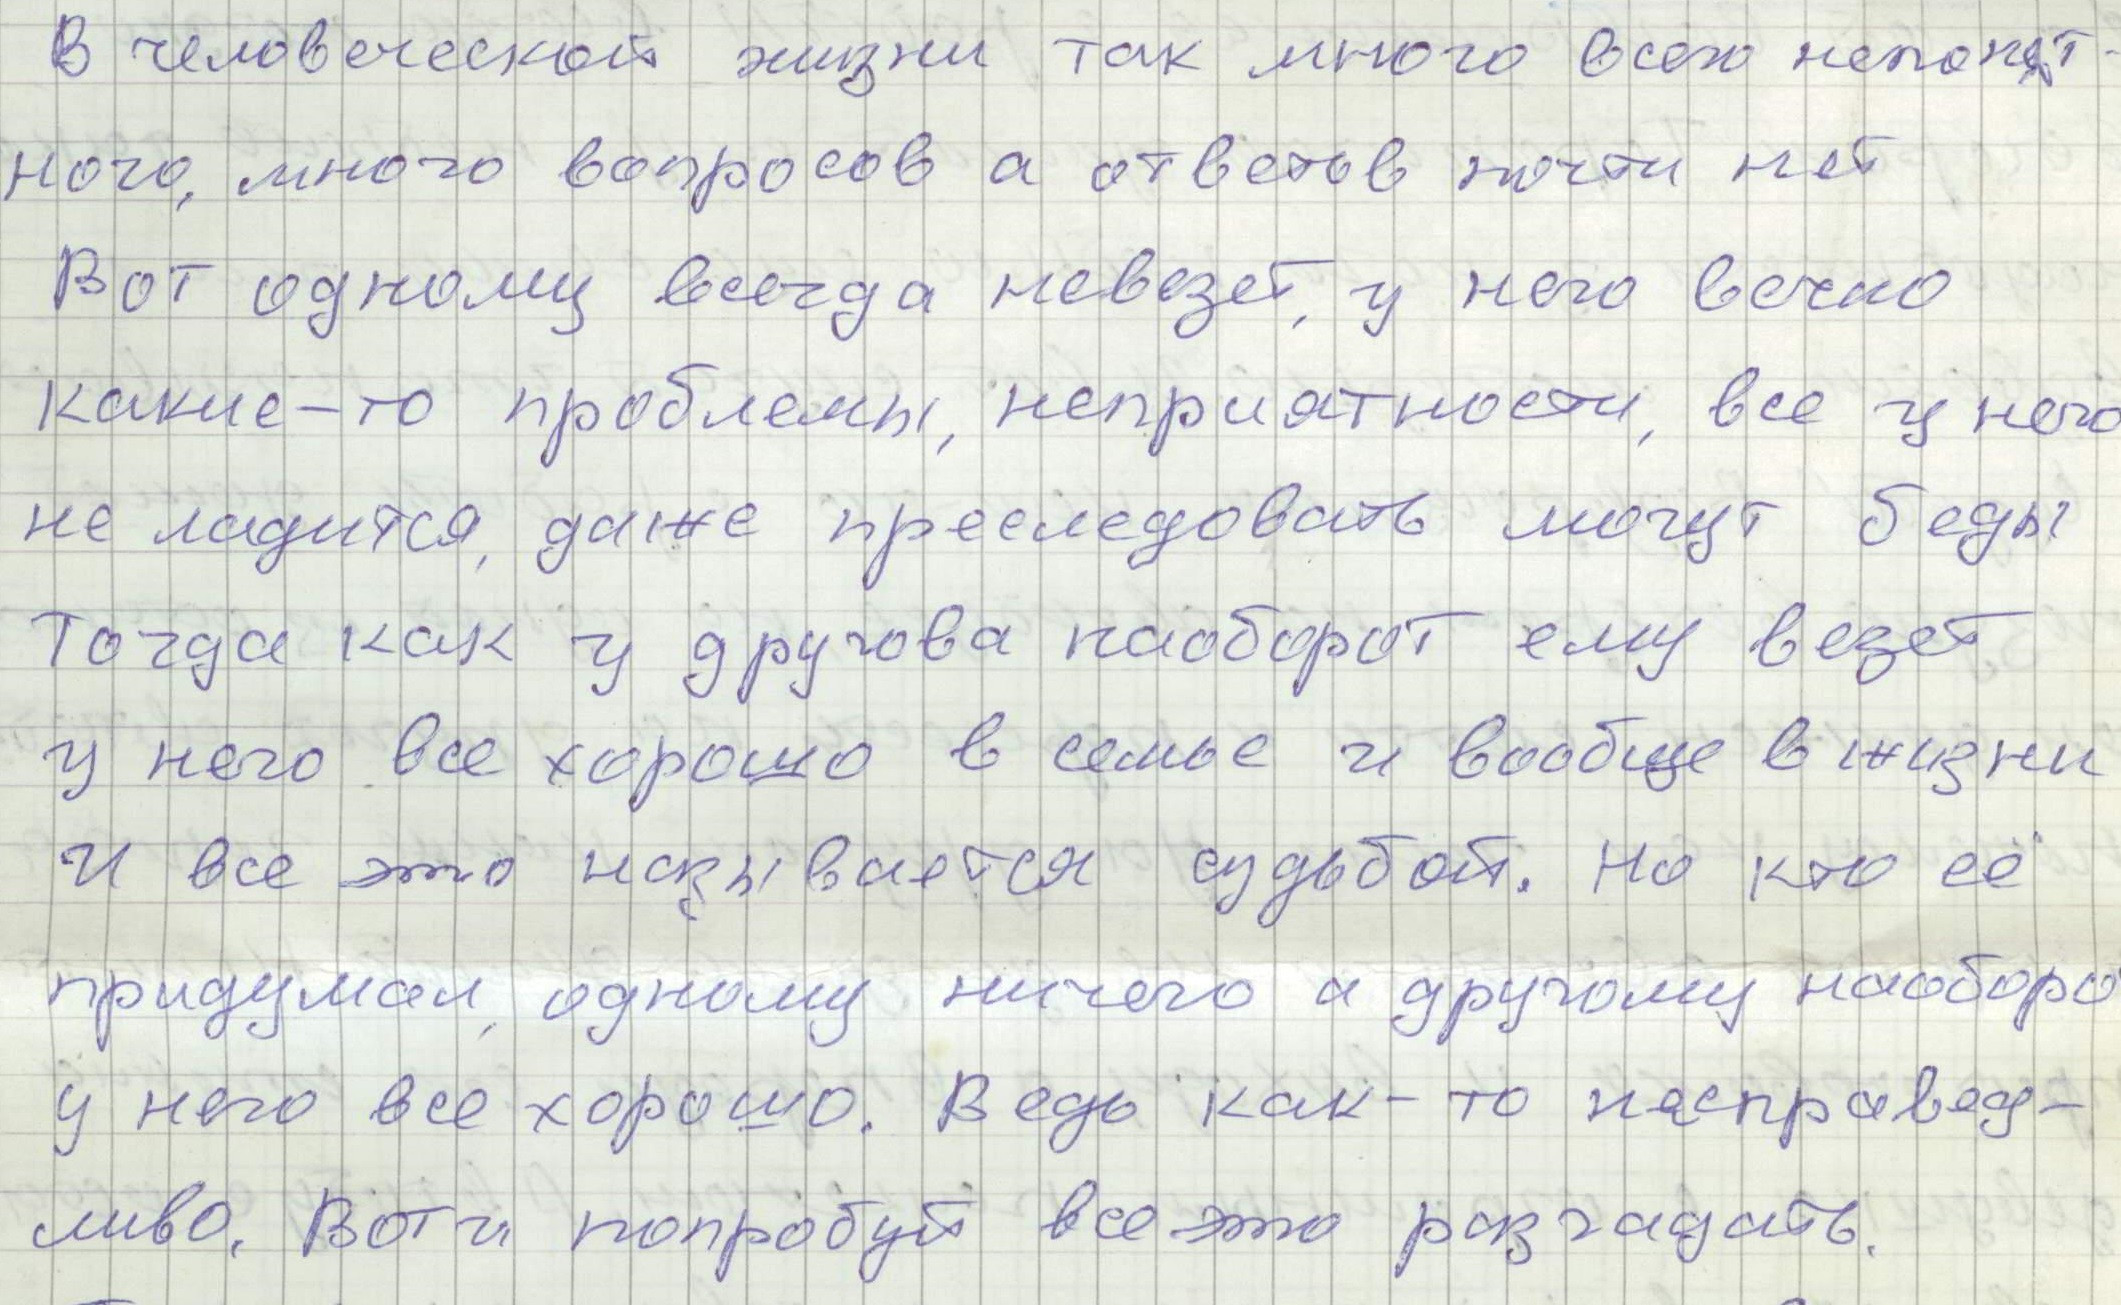 В человеческой жизни так много всего непонят-
ного, много вопросов а ответов почти нет
Вот одному всегда невезет, у него вечно
какие-то проблемы, неприятности, все у него
не ладится, даже преследовать могут беды
Тогда как у другова наоборот ему везет
у него все хорошо в семье и вообще в жизни
И все это называется судьбой. Но кто её
придумал, одному ничего а другому наоборо
у него все хорошо. Ведь как-то несправед-
ливо. Вот и попробуй все это разгадать.